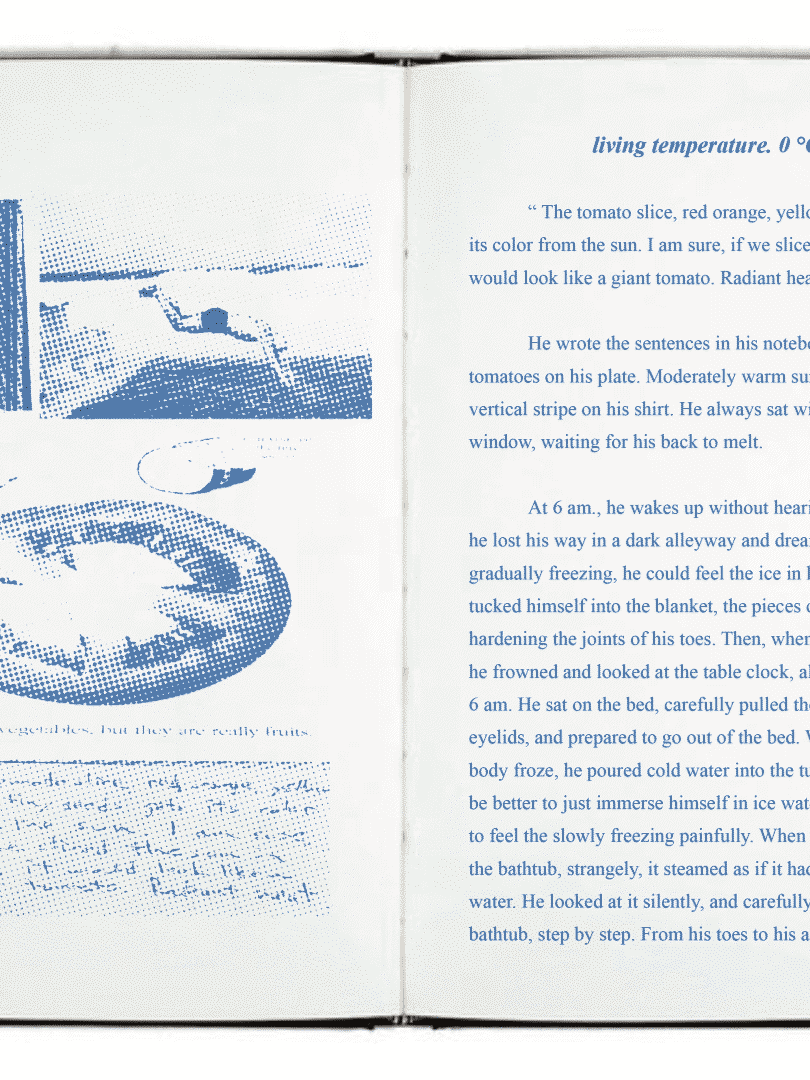 vegetables, but they are really fruits.
red orange, yellow
gets its color
sun. I am sure
sliced the sun
it would look like a
tomato. Radiant heat
living temperature. 0 °C
“ The tomato slice, red orange, yello
its color from the sun. I am sure, if we slice
would look like a giant tomato. Radiant hea
He wrote the sentences in his notebo
tomatoes on his plate. Moderately warm su
vertical stripe on his shirt. He always sat wi
window, waiting for his back to melt.
At 6 am., he wakes up without heari
he lost his way in a dark alleyway and drea
gradually freezing, he could feel the ice in
tucked himself into the blanket, the pieces
hardening the joints of his toes. Then, when
he frowned and looked at the table clock, al
6 am. He sat on the bed, carefully pulled the
eyelids, and prepared to go out of the bed.
body froze, he poured cold water into the tu
be better to just immerse himself in ice wat
to feel the slowly freezing painfully. When
the bathtub, strangely, it steamed as if it had
water. He looked at it silently, and carefully
bathtub, step by step. From his toes to his a